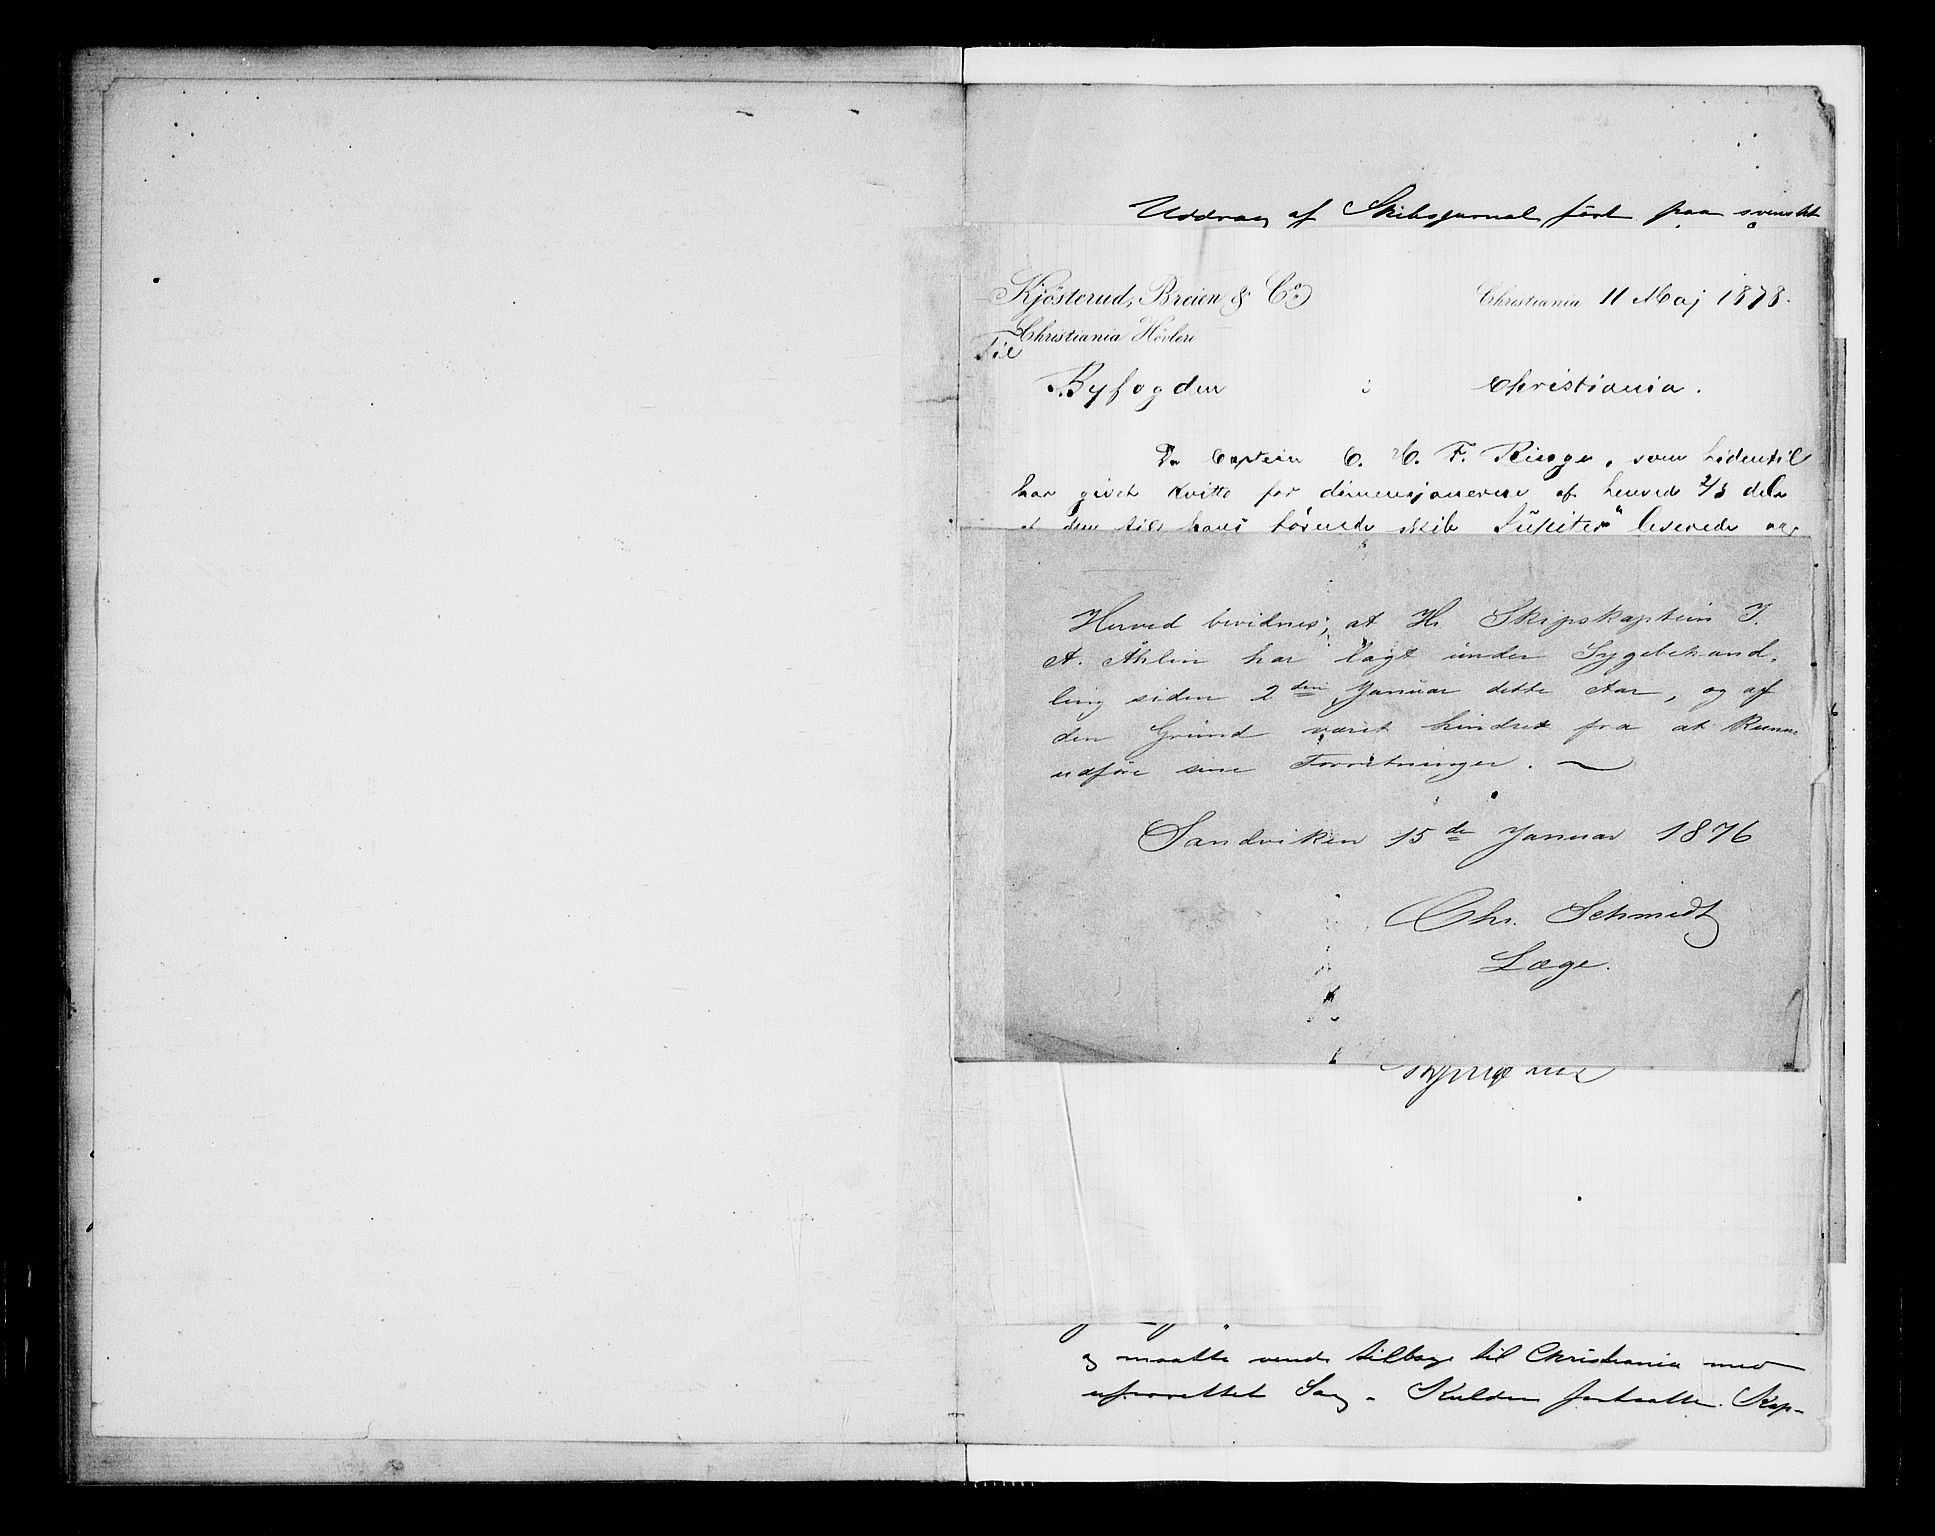 Uddrag af Skibsjournal ført paa svenskt
Kjösterud, Breien & Co
Christiania 11 Maj 1878.
Christiania Høvleri
Til
Byfogden i Christiania.
Da Captein C. H. F. Ringe, som hidentil
har givet kvitto for dimensjonerne af henved 2/3 dele
den til hans förende skib "Jupiter" leverede
Herved bevidnes, at Hr Skipskaptein J.
A. Åhlin har lagt under Sygebehand-
ling siden 2den Januar dette Aar, og af
den Grund været hindret fra at kunne
udföre sine Forretninger.
Sandviken 15de Januar 1876
Chr. Schmidt
Læge.
og maatte vende tilbage til Christiania med
uforrettet Sag. Kulden fortsatte. Kap-